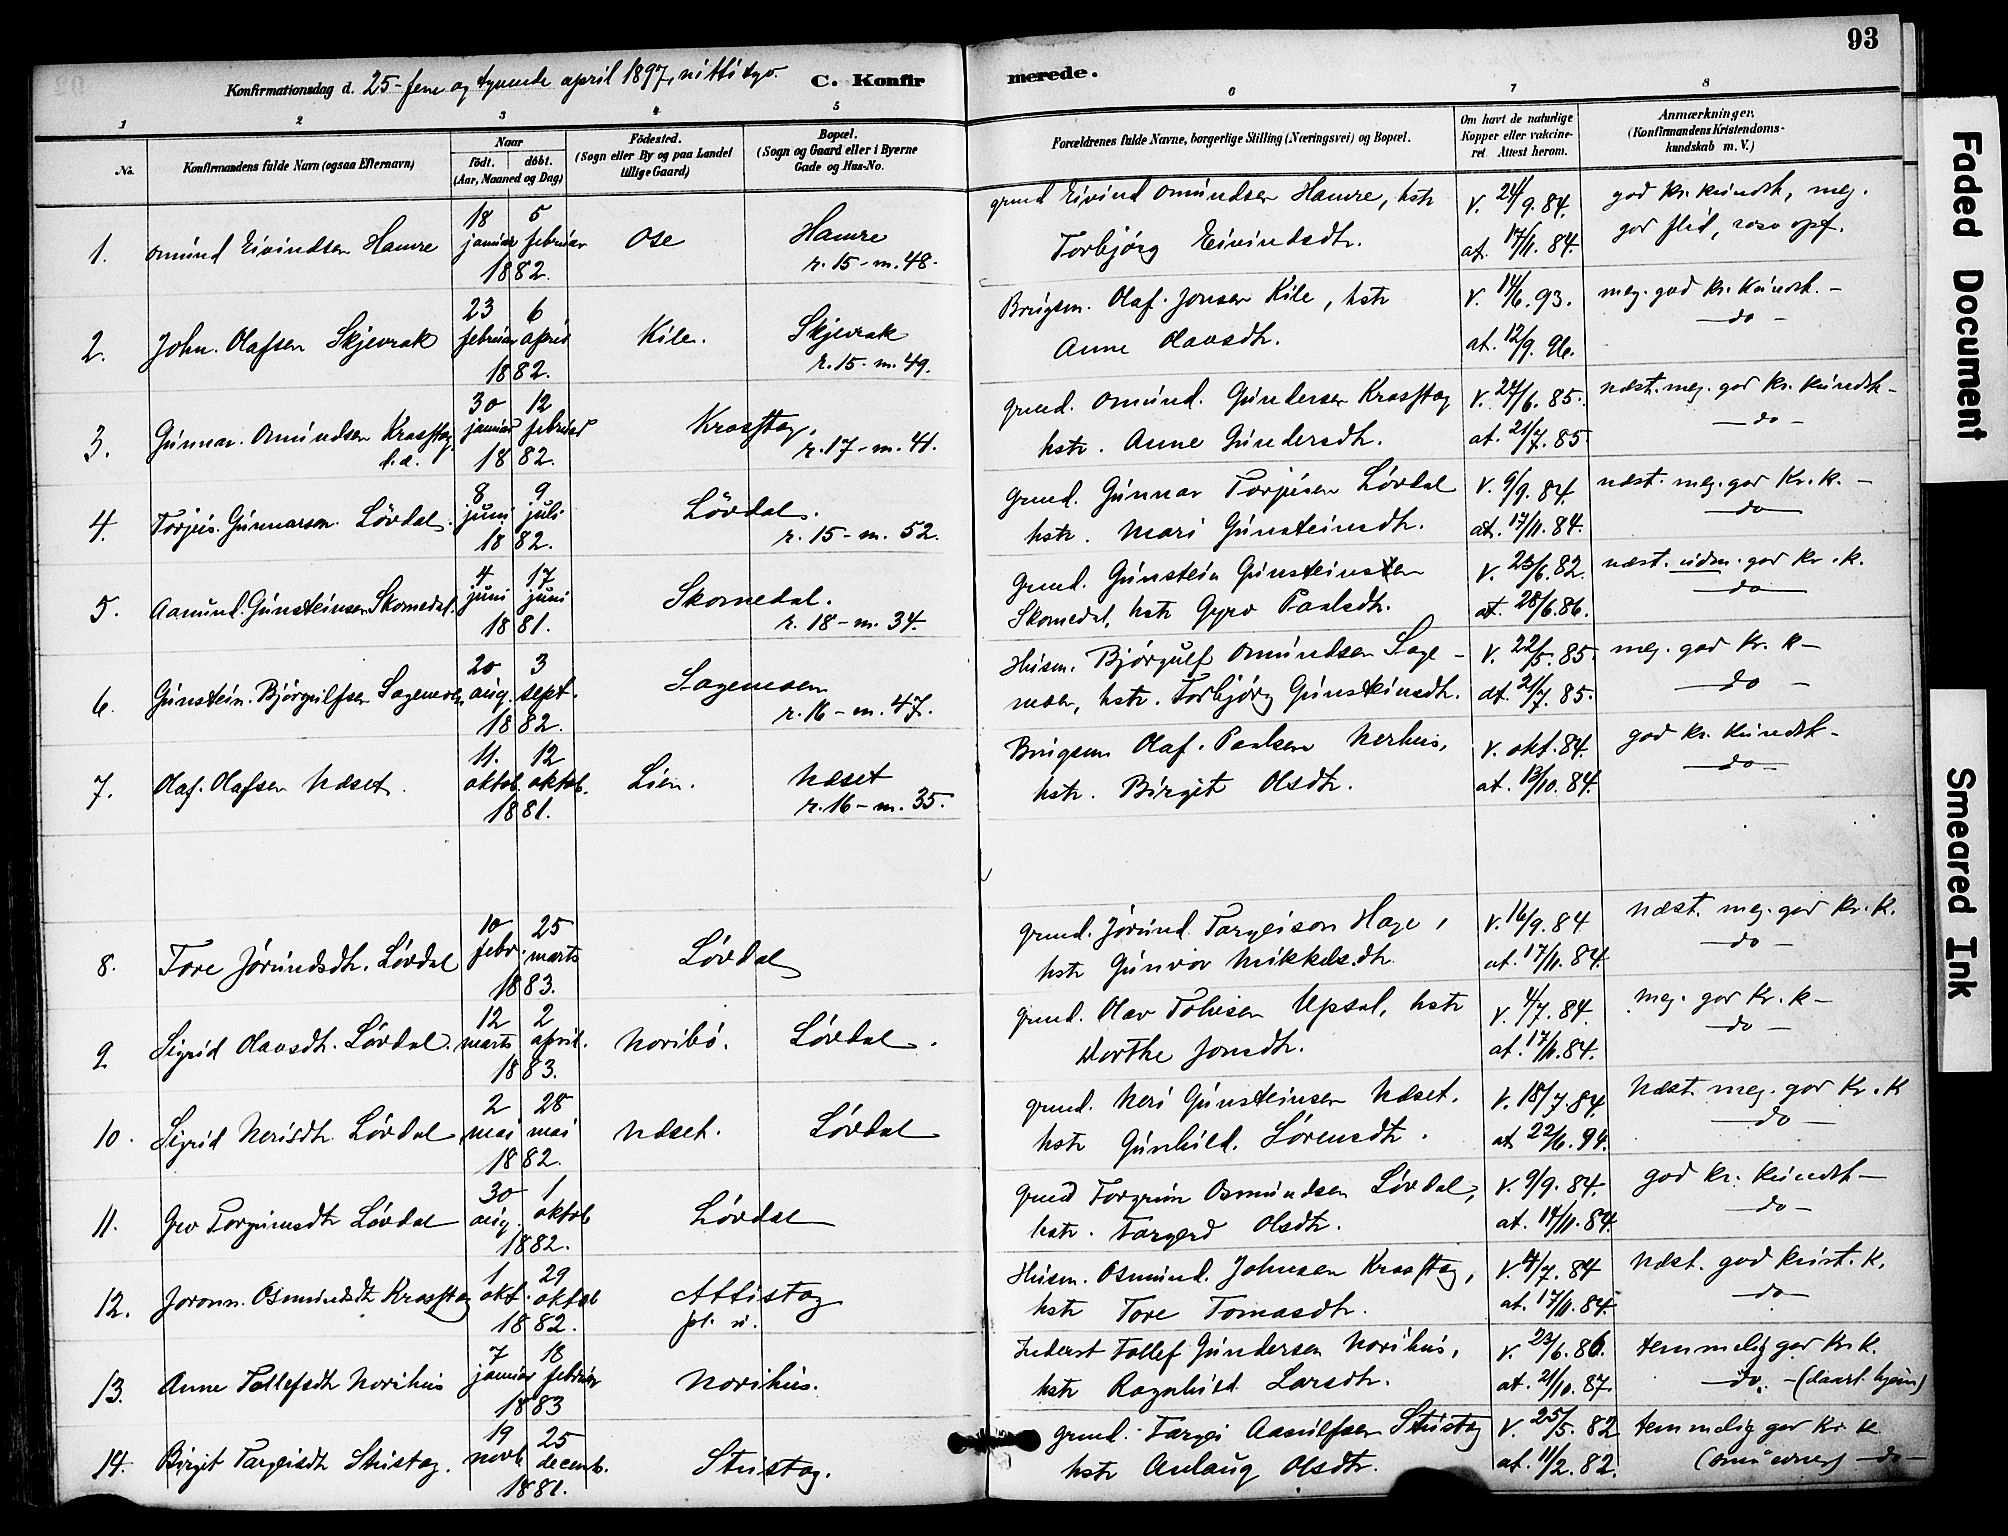 93
Konfirmationsdag d. 25- fem og tyvende april 1897, nittisyv.
C. Konfirmerede.
1 2 3 4 5 6 7 8
No.
Konfirmandens fulde Navn (ogsaa Efternavn)
Naar
födt. döbt.
(Aar, Maaned og Dag)
Födested.
(Sogn eller By og paa Landet
tillige Gaard)
Bopæl.
(Sogn og Gaard eller i Byerne
Gade og Hus-No.
Forældrenes fulde Navne, borgerlige Stilling (Næringsvei) og Bopæl.
Om havt de naturlige
Kopper eller vakcine-
ret. Attest herom.
Anmærkninger.
(Konfirmandens Kristendoms-
kundskab m. V.)
1. Omund Eivindsen Hamre
18 januar 5 februar 1882.
Ose
Hamre
r. 15 - m. 48.
grund Eivind Omundsen Hamre, hstr
Torbjørg Eivindsdtr.
v. 24/9. 84.
at. 17/11. 84.
god kr. kundsk, meg.
god flid, rosv opf.
2. John. Olafsen Skjevrak
23 februar 6 april 1882.
Kile.
Skjevrak
r. 15 - m. 49.
Brugsm. Olaf. Jonsen Kile, hstr
Anne Olavsdtr.
v. 14/6. 93.
at. 12/9. 96.
meg. god kr. kundsk. -
- do -
3. Gunnar. Omundsen Krosstog
f. a.
30 januar 12 februar 1882.
Krosstog.
r. 17 - m. 41.
grund. Omund. Gundersen Krosstog
hstr. Anne Gundersdtr.
v. 24/6. 85.
at. 21/7. 85.
næst. meg. god kr. kundsk -
- do -
4. Torjeis. Gunnarson. Løvdal.
8 juni 9 juli 1882.
Løvdal.
r. 15 - m. 52.
Grund. Gunnar Torjusen Løvdal
hstr. Mari Gunsteinsdtr.
v. 9/9. 84.
at. 17/11. 84.
næst. meg. god kr. k. -
- do -
5. Aamund. Gunsteinsen Skomedal.
4 juni 17 juni 1881.
Skomedal.
r. 18 - m. 34.
Grund. Gunstein Gunsteinsen
Skomedal, hstr Gyro Paalsdtr.
v. 23/6. 82.
at. 28/6. 86.
næst. udm. god kr. k.
- do -
6. Gunstein. Bjørgulfsen Sagemoen
20 aug. 3 sept. 1882.
Sagemoen
r. 16 - m. 47.
Husm. Bjørgulf Omundsen Sage -
moen, hstr. Torbjørg Gunsteinsdtr.
v. 22/5. 85.
at. 21/7. 85.
meg. god kr. k -
- do -
7. Olaf. Olafsen Næset.
11. oktob. 12 oktob. 1881.
Lien.
Næset
r. 16 - m. 35.
Brugsm Olaf. Paalsen Nerhus,
hstr. Birgit Olsdtr.
v. okt. 84.
at. 13/10. 84.
god kr. kundsk -
- do -
8. Tore Jørundsdtr. Løvdal
10 febr. 25 marts 1883.
Løvdal
grund. Jørund. Targeison Hage,
hstr Gunvor Mikkelsdtr.
v. 16/9. 84
at. 17/11. 84.
Næst. meg. god kr. k.
- do -
9 Sigrid Olavsdtr. Løvdal.
12 marts 2 april. 1883.
Noribø.
Løvdal.
grund. Olav Tolvsen Upsal, hstr
Dorthe Jonsdtr.
v. 4/7. 84.
at. 17/11. 84.
meg. god kr. k -
- do -
10. Sigrid Nerisdtr Løvdal
2 mai 28 mai 1882.
Næset.
Løvdal
grund. Neri Gunsteinsen Næset.
hstr Gunhild. Sørensdtr.
v. 18/7. 84.
at 22/6. 94.
Næst. meg. god kr. k
- do -
11. Gro Torgrimsdtr Løvdal
30 aug. 1 oktob 1882.
Løvdal
Grund Torgrim Osmundsen Løvdal,
hstr. Targerd Olsdtr.
v. 9/9. 84.
at. 17/11. 84.
god kr. kundsk -
- do -
12. Joronn. Osmundsdtr Krosstog
1 okt. 29 oktob 1882.
Attistog
Husm. Osmund. Johnsen Krosstog,
hstr Tore Tomasdtr.
v. 4/7. 84
at. 17/11. 84.
Næst. god krist. k.
- do -
13. Anne Tollefsdtr Norihus
7 januar 18 februar 1883
Norihus.
Inderst Tollef Gundersen Norihus,
hstr Ragnhild Larsdtr.
v. 23/6. 86.
at. 21/10. 87.
temmelig god kr k.
- do. - (daarl. hjem)
14. Birgit Targeisdtr Stustog.
19 novb 25 decemb. 1881.
Stustog.
grund. Targei Aasulfsen Stustog
hstr Anlaug Olsdtr.
v. 25/5. 82
at. 11/2. 82.
temmelig god kr k
(små evner) - do -
Faded Document
Smeared Ink